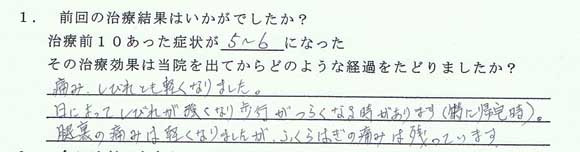 1. 前回の治療結果はいかがでしたか?
治療前10あった症状が 5~6 になった
その治療効果は当院を出てからどのような経過をたどりましたか?
痛み、しびれとも軽くなりました。
日によってしびれが強くなり歩行がつらくなる時があります(特に帰宅時)。
腿裏の痛みは軽くなりましたが、ふくらはぎの痛みは残っています